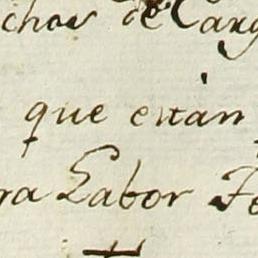 chos de Carg
que estan
ra Labor Fe